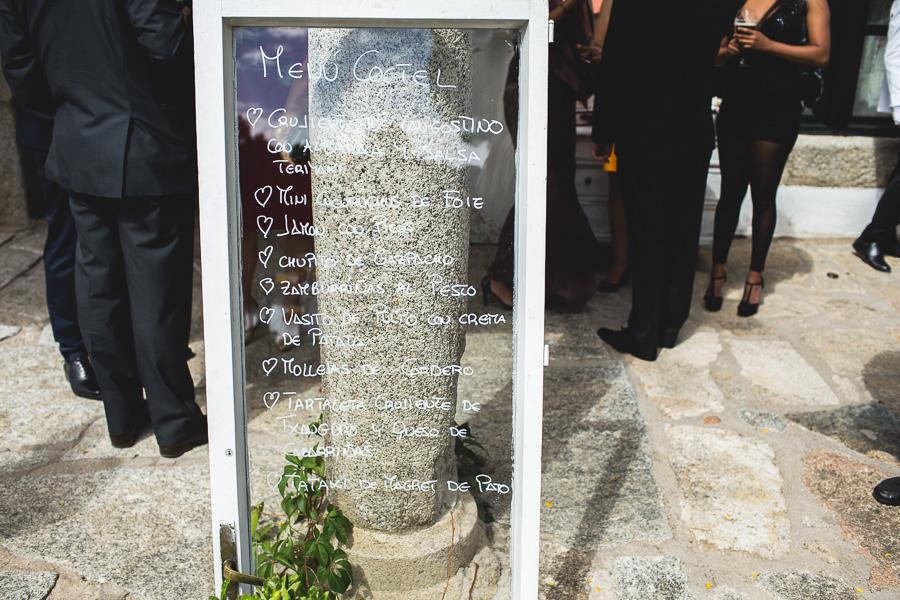 Menu Coctel
Crujiente de Langostino
con Salsa
Teriyaki
Mini de Foie
Jamon con Picos
chupito de Gazpacho
Zamburiñas al Pesto
Vasito de Pulpo con crema
de Patata
Mollejas de Cordero
Tartaleta Crujiente de
Txangurro y Queso de
Tataki de Magret de Pato